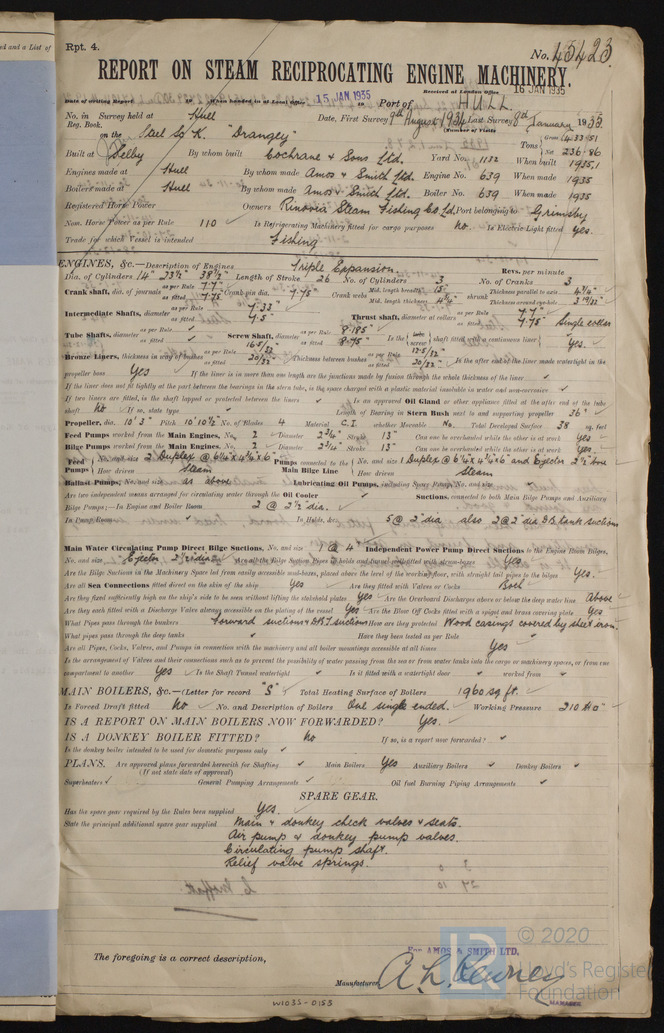 ed and a List of
Rpt. 4.
No. 45423.
REPORT ON STEAM RECIPROCATING ENGINE MACHINERY.
Received at London Office 16 JAN 1935
Date of writing Report 19 When handed in at Local Office 15 JAN 1935 19 Port of HULL
No. in Survey held at Hull Date, First Survey 9th August 1934 Last Survey 8th January 1935
Reg. Book. (Number of Visits
on the Steel Sc K. "Drangey" Tons Gross 433.51 Net 236.86
Built at Selby By whom built Cochrane & Sons Ltd. Yard No. 1132 When built 1935.1
Engines made at Hull By whom made Amos & Smith Ltd. Engine No. 639 When made 1935
Boilers made at Hull By whom made Amos & Smith Ltd. Boiler No. 639 When made 1935
Registered Horse Power Owners Rinovia Steam Fishing Co Ld. Port belonging to Grimsby
Nom. Horse Power as per Rule 110 Is Refrigerating Machinery fitted for cargo purposes No. Is Electric Light fitted Yes.
Trade for which Vessel is intended Fishing
ENGINES, &c.—Description of Engines Triple Expansion Revs. per minute
Dia. of Cylinders 14" 23½" 38½" Length of Stroke 26 No. of Cylinders 3 No. of Cranks 3
Crank shaft, dia. of journals as per Rule 7.7" as fitted 7.75 Crank pin dia. 7.75 Crank webs Mid. length breadth 15" Mid. length thickness 4¾" shrunk Thickness parallel to axis 4¾" Thickness around eye-hole
Intermediate Shafts, diameter as per Rule 7.33" as fitted 7.5" Thrust shaft, diameter at collars as per Rule 7.7" as fitted 7.75 Single collar
Tube Shafts, diameter as per Rule as fitted Screw Shaft, diameter as per Rule 8.185" as fitted 8.75" Is the tube screw shaft fitted with a continuous liner Yes.
Bronze Liners, thickness in way of bushes as per Rule as fitted 20/32" Thickness between bushes as per Rule as fitted 20/32" Is the after end of the liner made watertight in the
propeller boss Yes If the liner is in more than one length are the junctions made by fusion through the whole thickness of the liner
If the liner does not fit tightly at the part between the bearings in the stern tube, is the space charged with a plastic material insoluble in water and non-corrosive
If two liners are fitted, is the shaft lapped or protected between the liners Is an approved Oil Gland or other appliance fitted at the after end of the tube
shaft No If so, state type Length of Bearing in Stern Bush next to and supporting propeller 36"
Propeller, dia. 10' 3" Pitch 10' 10½" No. of Blades 4 Material C.I. whether Moveable No. Total Developed Surface 38 sq. feet
Feed Pumps worked from the Main Engines, No. 2 Diameter 2¾" Stroke 13" Can one be overhauled while the other is at work Yes
Bilge Pumps worked from the Main Engines, No. 2 Diameter 2¾" Stroke 13" Can one be overhauled while the other is at work Yes
Feed Pumps No. and size 2 Duplex @ 6¼ x 4¼ x 6" How driven Steam Pumps connected to the Main Bilge Line No. and size 1 Duplex @ 6¼ x 4¼ x 6" and Ejector 2½" bore How driven Steam
Ballast Pumps, No. and size as above Lubricating Oil Pumps, including Spare Pump, No. and size
Are two independent means arranged for circulating water through the Oil Cooler Suctions, connected to both Main Bilge Pumps and Auxiliary
Bilge Pumps;—In Engine and Boiler Room 2 @ 2½" dia.
In Pump Room In Holds, &c. 5 @ 2" dia also 2 @ 2" dia D.B. tank suctions
Main Water Circulating Pump Direct Bilge Suctions, No. and size 1 @ 4" Independent Power Pump Direct Suctions to the Engine Room Bilges,
No. and size Ejector 2½" dia. Are all the Bilge Suction Pipes in holds and tunnel well fitted with strum-boxes Yes.
Are the Bilge Suctions in the Machinery Space led from easily accessible mud-boxes, placed above the level of the working floor, with straight tail pipes to the bilges Yes.
Are all Sea Connections fitted direct on the skin of the ship Yes Are they fitted with Valves or Cocks Both
Are they fixed sufficiently high on the ship's side to be seen without lifting the stokehold plates Yes Are the Overboard Discharges above or below the deep water line Above
Are they each fitted with a Discharge Valve always accessible on the plating of the vessel Yes Are the Blow Off Cocks fitted with a spigot and brass covering plate Yes
What Pipes pass through the bunkers Forward suctions & D.B.T suctions How are they protected Wood casings covered by sheet iron.
What pipes pass through the deep tanks Have they been tested as per Rule
Are all Pipes, Cocks, Valves, and Pumps in connection with the machinery and all boiler mountings accessible at all times Yes
Is the arrangement of Valves and their connections such as to prevent the possibility of water passing from the sea or from water tanks into the cargo or machinery spaces, or from one
compartment to another Yes Is the Shaft Tunnel watertight Is it fitted with a watertight door worked from
MAIN BOILERS, &c.—(Letter for record "S" Total Heating Surface of Boilers 1960 sq ft.
Is Forced Draft fitted No No. and Description of Boilers One single ended. Working Pressure 210
IS A REPORT ON MAIN BOILERS NOW FORWARDED? Yes.
IS A DONKEY BOILER FITTED? No If so, is a report now forwarded?
Is the donkey boiler intended to be used for domestic purposes only
PLANS. Are approved plans forwarded herewith for Shafting Main Boilers Yes Auxiliary Boilers Donkey Boilers
(If not state date of approval)
Superheaters General Pumping Arrangements Oil fuel Burning Piping Arrangements
SPARE GEAR.
Has the spare gear required by the Rules been supplied Yes.
State the principal additional spare gear supplied Main & donkey check valves & seats.
Air pump & donkey pump valves.
Circulating pump shaft.
Relief valve springs.
For AMOS & SMITH LTD.
The foregoing is a correct description,
Manufacturer.
MANAGER
© 2020
Lloyd's Register
Foundation
W1035-0153